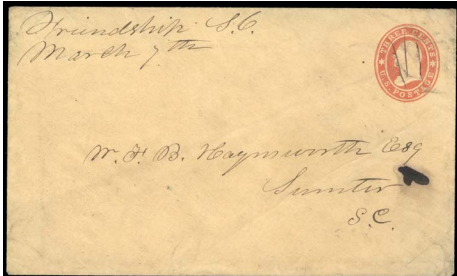 Friendship S.C.
March 7th
THREE CENTS
U.S. POSTAGE
W. F. B. Haynsworth Esq
Sumter
S.C.